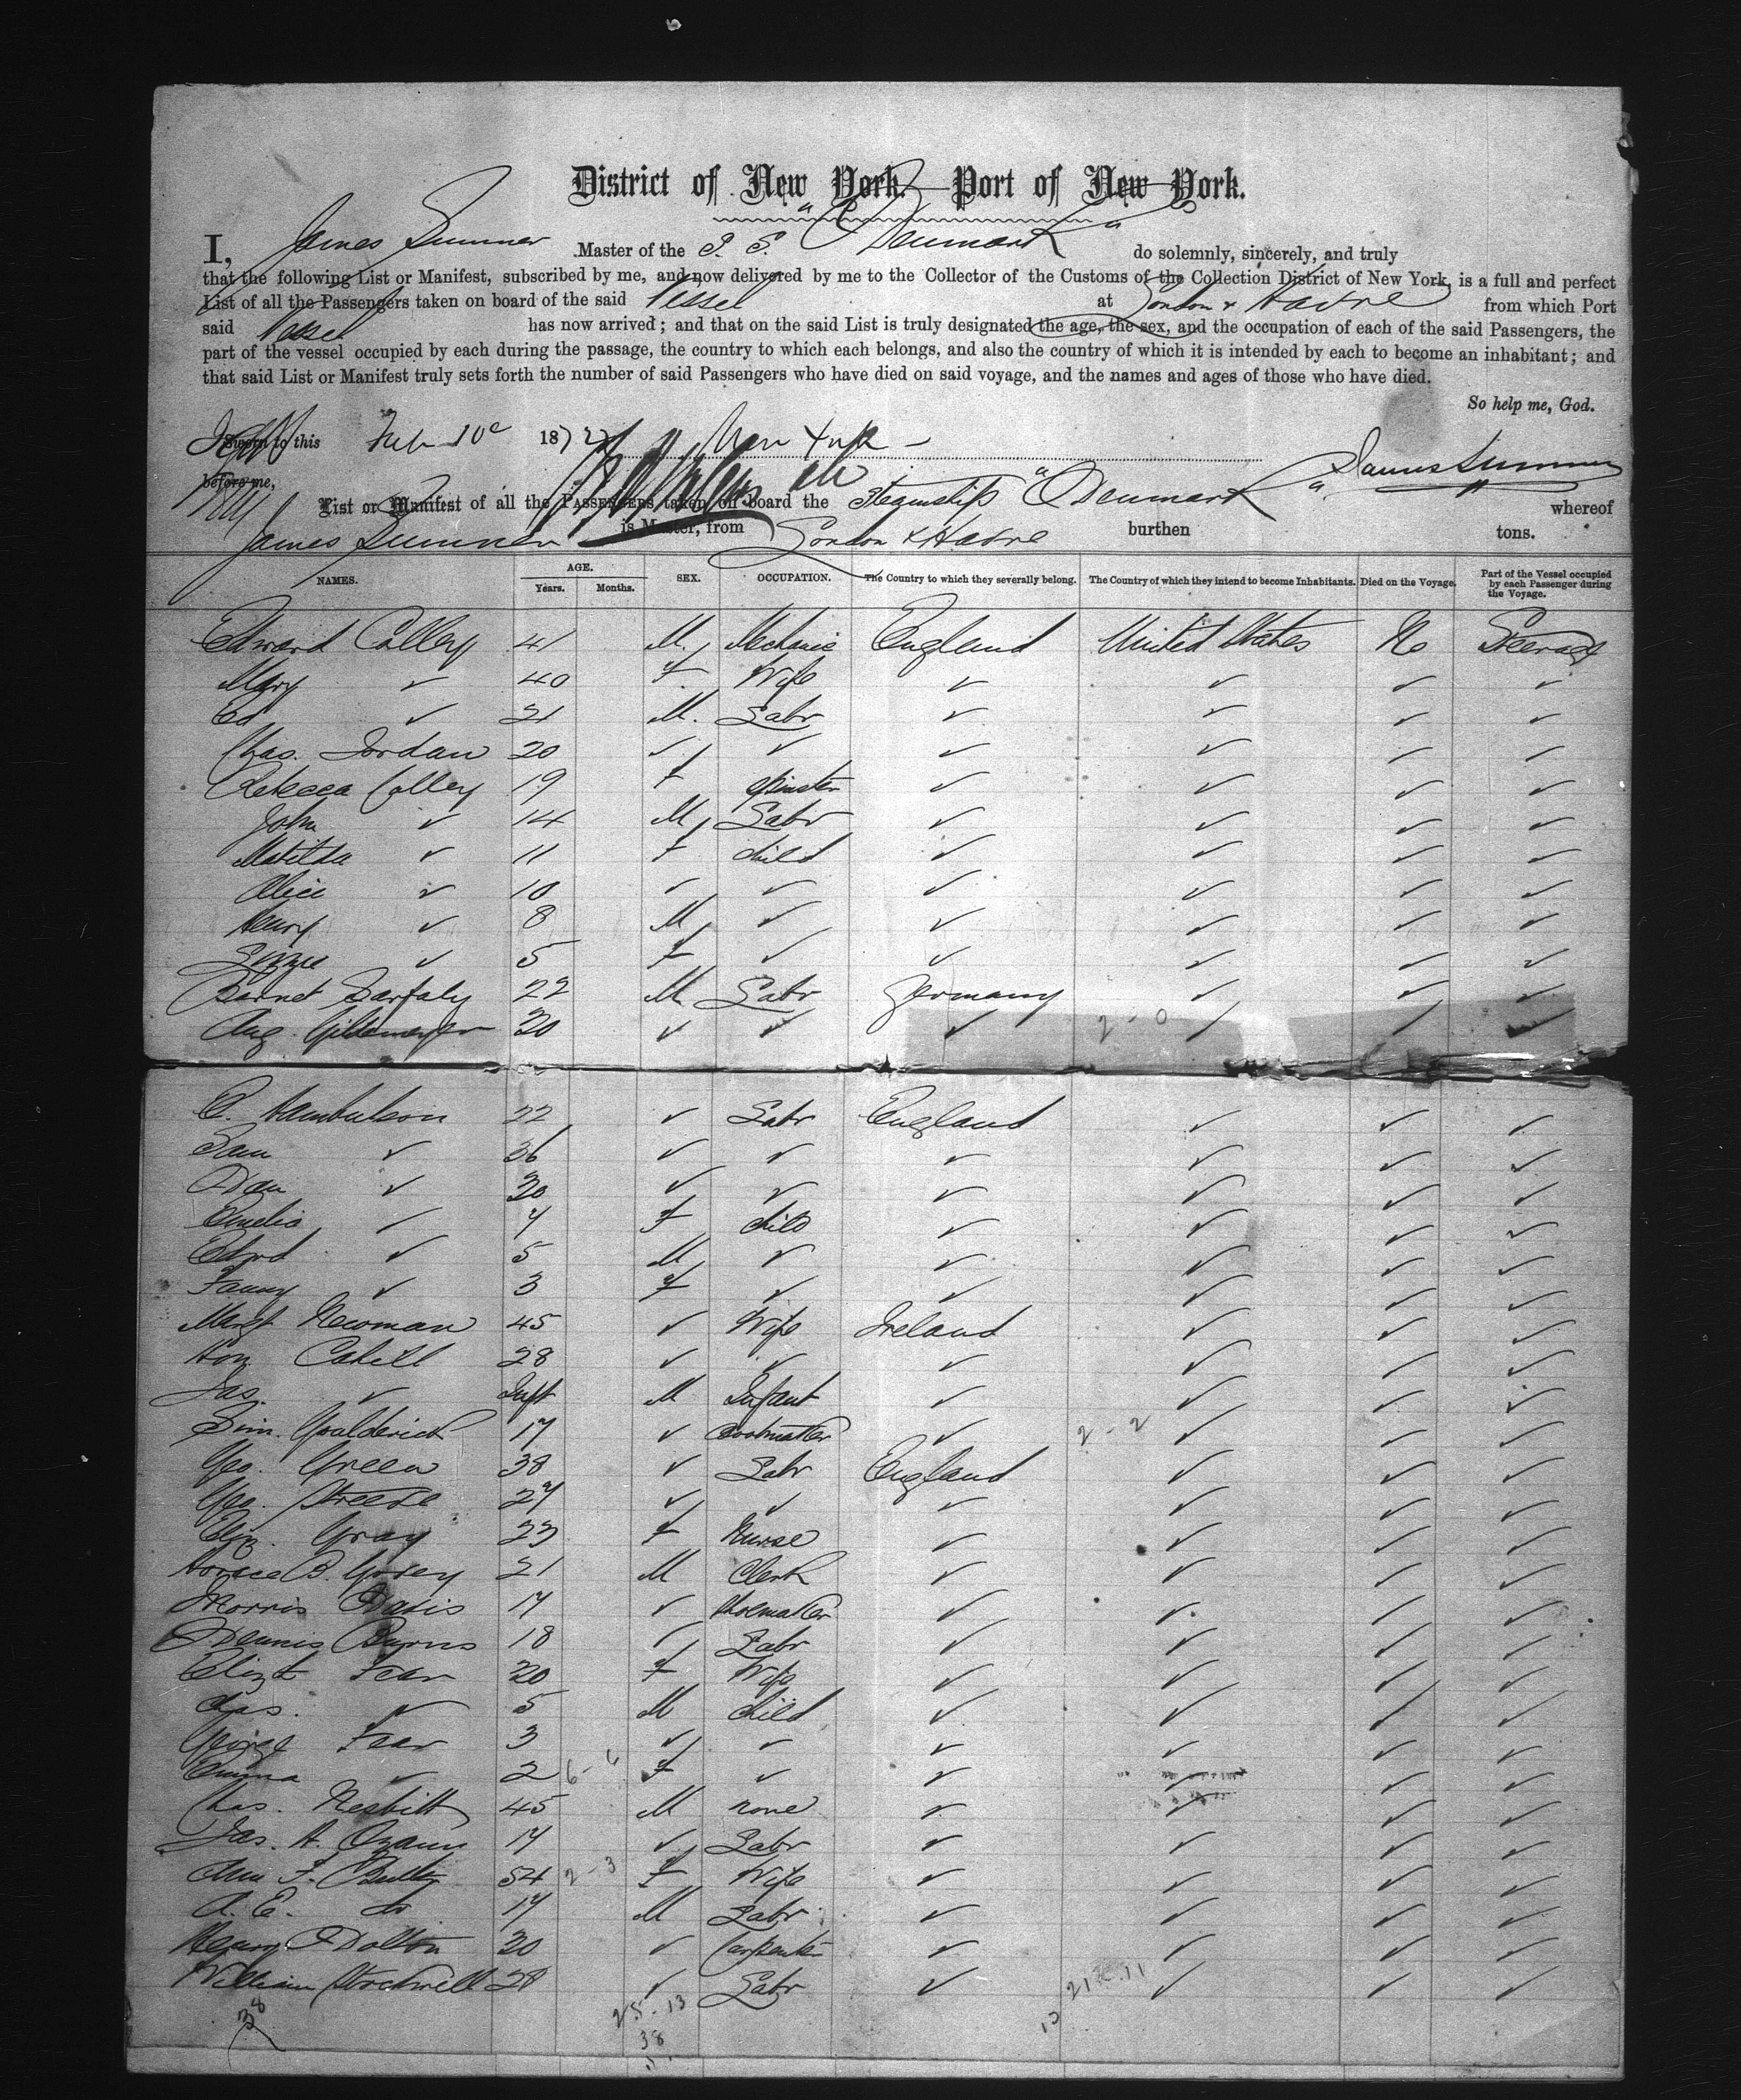 District of New York.—Port of New York.
I, James Sumner Master of the S. S. "Denmark" do solemnly, sincerely, and truly
that the following List or Manifest, subscribed by me, and now delivered by me to the Collector of the Customs of the Collection District of New York, is a full and perfect
List of all the Passengers taken on board of the said Vessel at London & Havre from which Port
said Vessel has now arrived; and that on the said List is truly designated the age, the sex, and the occupation of each of the said Passengers, the
part of the vessel occupied by each during the passage, the country to which each belongs, and also the country of which it is intended by each to become an inhabitant; and
that said List or Manifest truly sets forth the number of said Passengers who have died on said voyage, and the names and ages of those who have died.
So help me, God.
Sworn to this Feb 10 1872 New York
before me, James Sumner
List or Manifest of all the PASSENGERS taken on board the Steamship "Denmark" whereof
James Sumner is Master, from London & Havre burthen tons.
NAMES. AGE. Years. Months. SEX. OCCUPATION. The Country to which they severally belong. The Country of which they intend to become Inhabitants. Died on the Voyage. Part of the Vessel occupied by each Passenger during the Voyage.
Edward Colley 41 M. Mechanic England United States No Steerage
Mary ✓ 40 F Wife ✓ ✓ ✓ ✓
Ed ✓ 21 M. Labr ✓ ✓ ✓ ✓
Chas. Jordan 20 ✓ ✓ ✓ ✓ ✓ ✓
Rebecca Colley 19 F Spinster ✓ ✓ ✓ ✓
John ✓ 14 M Labr ✓ ✓ ✓ ✓
Matilda ✓ 11 F Child ✓ ✓ ✓ ✓
Alice ✓ 10 ✓ ✓ ✓ ✓ ✓ ✓
Henry ✓ 8 M ✓ ✓ ✓ ✓ ✓
Lizzie ✓ 5 F ✓ ✓ ✓ ✓ ✓
Barnet 22 M Labr Germany ✓ ✓ ✓
Aug. Gildemeyer 20 ✓ ✓ ✓ 2-0 ✓ ✓ ✓
22 ✓ Labr England ✓ ✓ ✓
Sam ✓ 36 ✓ ✓ ✓ ✓ ✓ ✓
Dan ✓ 30 ✓ ✓ ✓ ✓ ✓ ✓
Amelia ✓ 7 F Child ✓ ✓ ✓ ✓
Edwd ✓ 5 M ✓ ✓ ✓ ✓ ✓
Fanny ✓ 3 F ✓ ✓ ✓ ✓ ✓
Margt Newman 45 ✓ Wife Ireland ✓ ✓ ✓
Hon Cahill 28 ✓ ✓ ✓ ✓ ✓ ✓
Jas. ✓ Inft M Infant ✓ ✓ ✓ ✓
Sim. 17 ✓ Bootmaker ✓ 2-2 ✓ ✓ ✓
Geo. Green 38 ✓ Labr England ✓ ✓ ✓
Geo. 27 ✓ ✓ ✓ ✓ ✓ ✓
Eliz. Gray 23 F Nurse ✓ ✓ ✓ ✓
Horace B. 21 M Clerk ✓ ✓ ✓ ✓
Morris Davis 17 ✓ Shoemaker ✓ ✓ ✓ ✓
Dennis Burns 18 ✓ Labr ✓ ✓ ✓ ✓
Elizt Fear 30 F Wife ✓ ✓ ✓ ✓
Chas. ✓ 5 M Child ✓ ✓ ✓ ✓
George Fear 3 ✓ ✓ ✓ ✓ ✓ ✓
Emma ✓ 2 6-6 F ✓ ✓ ✓ ✓ ✓
Chas. Nesbitt 45 M none ✓ ✓ ✓ ✓
Jas. H. Ozann 17 ✓ Labr ✓ ✓ ✓ ✓
Ann F. 54 2-3 F Wife ✓ ✓ ✓ ✓
A. E. do 17 M Labr ✓ ✓ ✓ ✓
Henry Dalton 30 ✓ Carpenter ✓ ✓ ✓ ✓
William Stockwell 28 ✓ Labr ✓ ✓ ✓ ✓
38 25-13
38